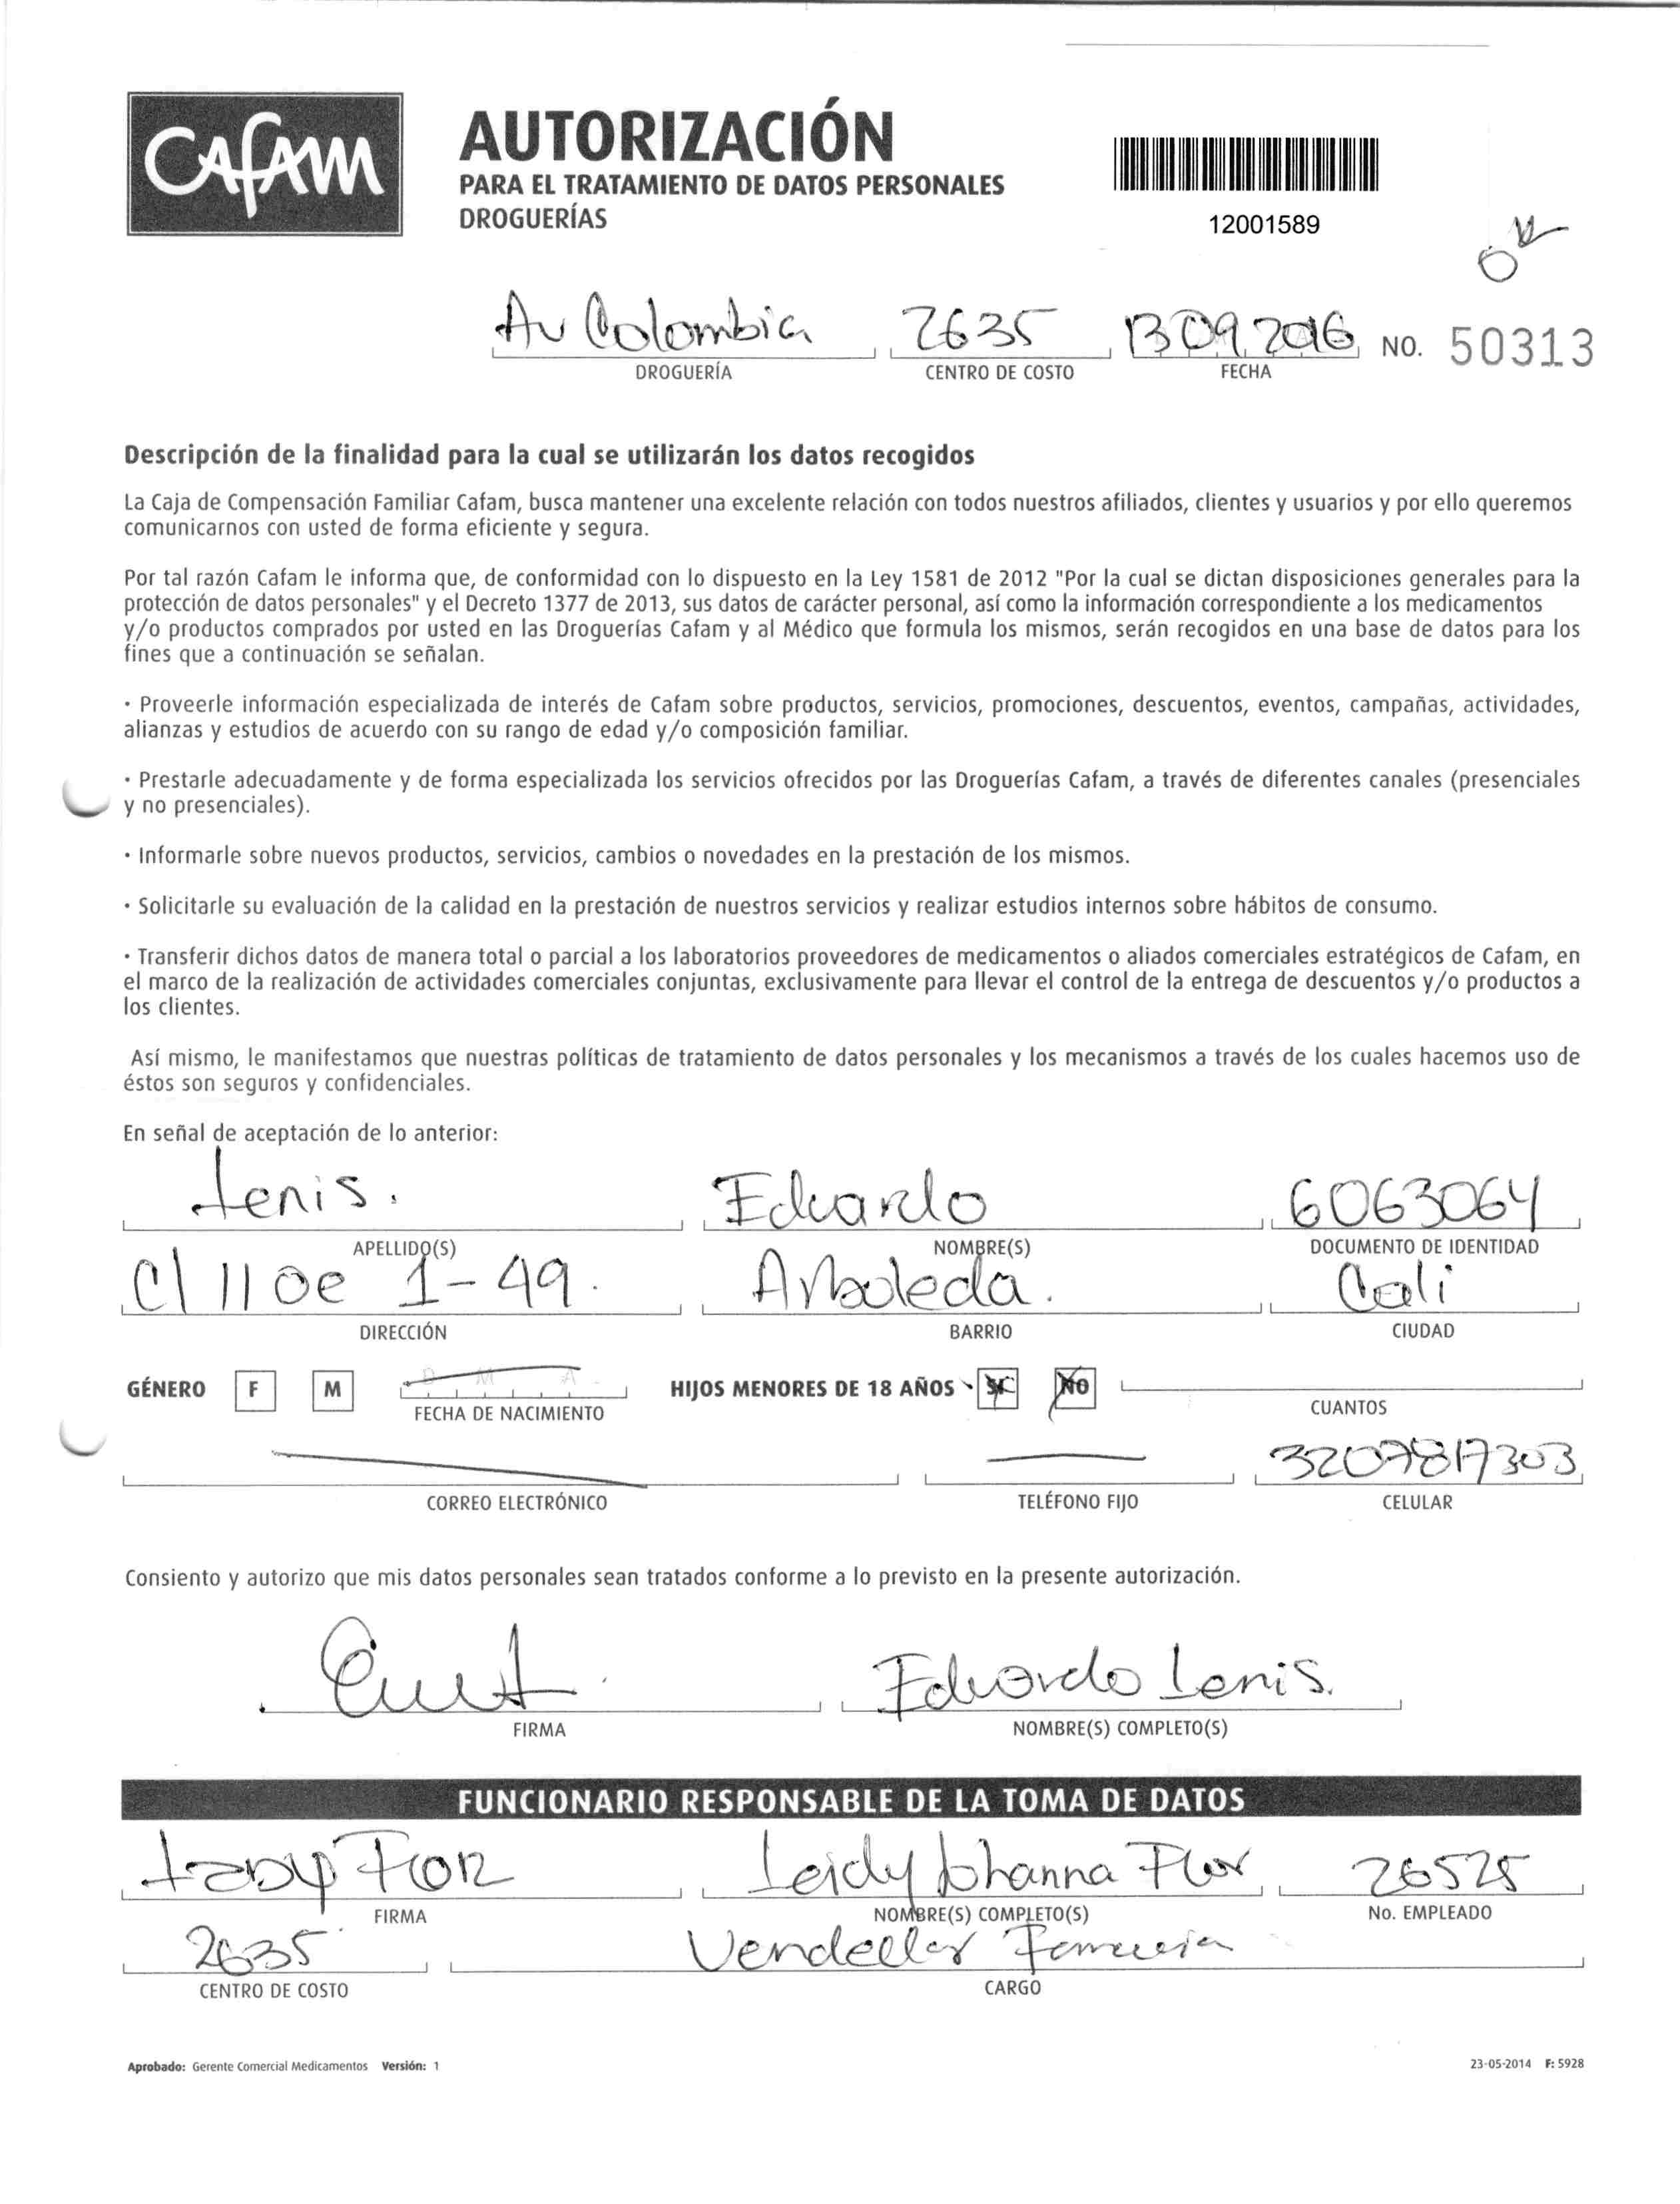 CAFAM
AUTORIZACIÓN
PARA EL TRATAMIENTO DE DATOS PERSONALES
DROGUERÍAS
12001589
OK
Av Colombia 2635 13 09 2016 NO. 50313
DROGUERÍA CENTRO DE COSTO FECHA
Descripción de la finalidad para la cual se utilizarán los datos recogidos
La Caja de Compensación Familiar Cafam, busca mantener una excelente relación con todos nuestros afiliados, clientes y usuarios y por ello queremos
comunicarnos con usted de forma eficiente y segura.
Por tal razón Cafam le informa que, de conformidad con lo dispuesto en la Ley 1581 de 2012 "Por la cual se dictan disposiciones generales para la
protección de datos personales" y el Decreto 1377 de 2013, sus datos de carácter personal, así como la información correspondiente a los medicamentos
y/o productos comprados por usted en las Droguerías Cafam y al Médico que formula los mismos, serán recogidos en una base de datos para los
fines que a continuación se señalan.
· Proveerle información especializada de interés de Cafam sobre productos, servicios, promociones, descuentos, eventos, campañas, actividades,
alianzas y estudios de acuerdo con su rango de edad y/o composición familiar.
· Prestarle adecuadamente y de forma especializada los servicios ofrecidos por las Droguerías Cafam, a través de diferentes canales (presenciales
y no presenciales).
· Informarle sobre nuevos productos, servicios, cambios o novedades en la prestación de los mismos.
· Solicitarle su evaluación de la calidad en la prestación de nuestros servicios y realizar estudios internos sobre hábitos de consumo.
· Transferir dichos datos de manera total o parcial a los laboratorios proveedores de medicamentos o aliados comerciales estratégicos de Cafam, en
el marco de la realización de actividades comerciales conjuntas, exclusivamente para llevar el control de la entrega de descuentos y/o productos a
los clientes.
Así mismo, le manifestamos que nuestras políticas de tratamiento de datos personales y los mecanismos a través de los cuales hacemos uso de
éstos son seguros y confidenciales.
En señal de aceptación de lo anterior:
Lenis. Eduardo 6063064
APELLIDO(S) NOMBRE(S) DOCUMENTO DE IDENTIDAD
Cl 11 Oe 1-49. Arboleda. Cali
DIRECCIÓN BARRIO CIUDAD
GÉNERO F M D M A HIJOS MENORES DE 18 AÑOS SI NO
FECHA DE NACIMIENTO CUANTOS
3207817303
CORREO ELECTRÓNICO TELÉFONO FIJO CELULAR
Consiento y autorizo que mis datos personales sean tratados conforme a lo previsto en la presente autorización.
Eduardo Lenis.
FIRMA NOMBRE(S) COMPLETO(S)
FUNCIONARIO RESPONSABLE DE LA TOMA DE DATOS
Leidy Johanna Flor 26525
FIRMA NOMBRE(S) COMPLETO(S) No. EMPLEADO
2635 Vendedor
CENTRO DE COSTO CARGO
Aprobado: Gerente Comercial Medicamentos Versión: 1 23-05-2014 F: 5928